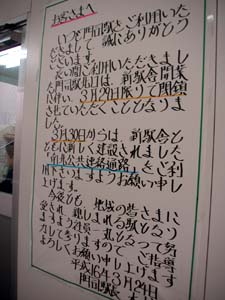 お客さまへ
いつも門司駅をご利用いた
だきまして誠にありがとう
ございます。
長い間ご利用いただきまし
た門司駅北口は、新駅舎開業
に伴い、3月29日限りで閉鎖
させていただくこととなりま
した。
3月30日からは、新駅舎と
ともに新しく建設されました
「南北公共連絡通路」をご利
用下さいますようお願い申し
上げます。
今後とも、地域の皆さまに
愛され、親しまれる駅となり
ますよう社員一丸となって努
力して参りますのでご指導
よろしくお願い申し上げます
平成16年3月24日
門司駅長